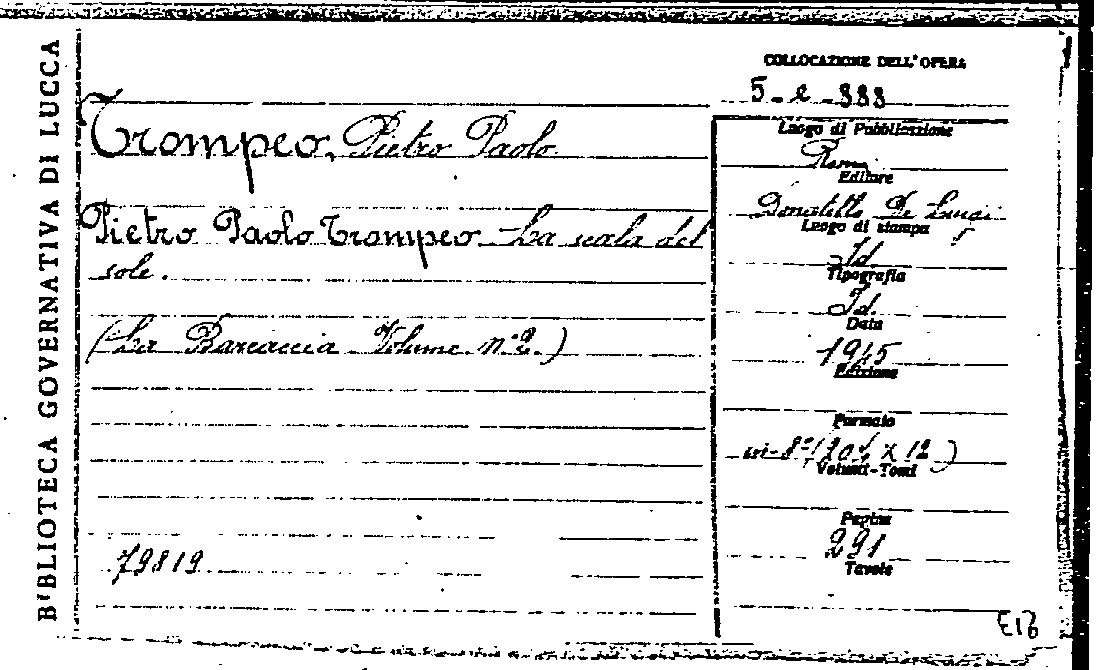 BIBLIOTECA GOVERNATIVA DI LUCCA
COLLOCAZIONE DELL'OPERA
5-e-888
Trompeo, Pietro Paolo
Pietro Paolo Trompeo La scala del
sole.
(La Barcaccia Volume n°2.)
79819
Luogo di Pubblicazione
Roma
Editore
Donatello De Luigi
Luogo di stampa
Id
Tipografia
Id.
Data
1945
Edizione
Formato
in-8°
Volumi-Tomi
Pagine
291
Tavole
E17b